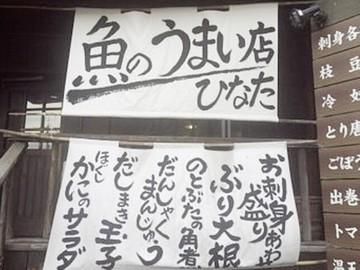 魚のうまい店
ひなた
お刺身盛りあわせ
ぶり大根
のとぶたの角煮
だんしゃくまんじゅう
だしまき玉子
ほぐしかにのサラダ
刺身各
枝豆
冷
とり唐
ごぼう
出巻
トマ
温玉